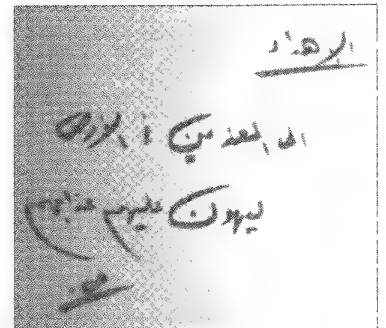 الإهداء
الى المعذبين في الارض
ليهون عليهم عذابهم